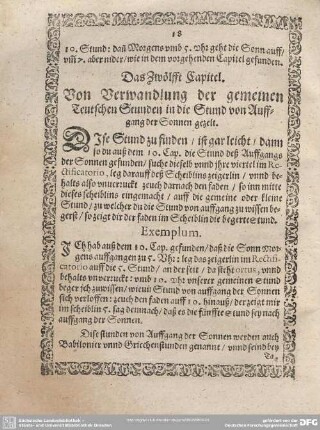 18
10. Stund: dañ Morgens vnb 5. vhr geht die Sonn auff/
viñ >. aber nider/wie in dem vorgehenden Capitel gefunden.
Das Zwölfft Capitel.
Von Verwandlung der gemeinen
Teutschen Stunden in die Stund von Auff-
gang der Sonnen gezelt.
DIse Stund zu finden / ist gar leicht / dann
so du auß dem 10. Cap. die Stund deß Auffgangs
der Sonnen gefunden/suche dieselb vnnd jhre viertel im Re-
ctificatorio, leg darauff deß Scheiblins zeigerlin / vnnd be-
halts also vnuerruckt zeuch darnach den faden / so inn mitte
dieses scheiblins eingemacht / auff die gemeine oder kleine
Stund/ zu welcher du die Stund von auffgang zu wissen be-
gerst/ so zeigt dir der faden im Scheiblin die begerte stund.
Exemplum.
ICh hab auß dem 10. Cap. gefunden/daß die Sonn Mor-
gens auffgangen zu 5. Vhr: leg das zeigerlin im Rectifi-
catorio auff die 5. Stund / an der seit / da steht ortus, vnnd
behalts vnuerruckt: vnd 10. vhr vnserer gemeinen Stund
beger ich zuwissen/wieuil Stund von auffgang der Sonnen
sich verloffen: zeuch den faden auff 10. hinauß/ der zeigt mir
im scheiblin 5. sag demnach/ daß es die fünffte stund sey nach
auffgang der Sonnen.
Dise stunden von Auffgang der Sonnen werden auch
Babilonier vnnd Griechenstunden genannt / vnnd seind bey